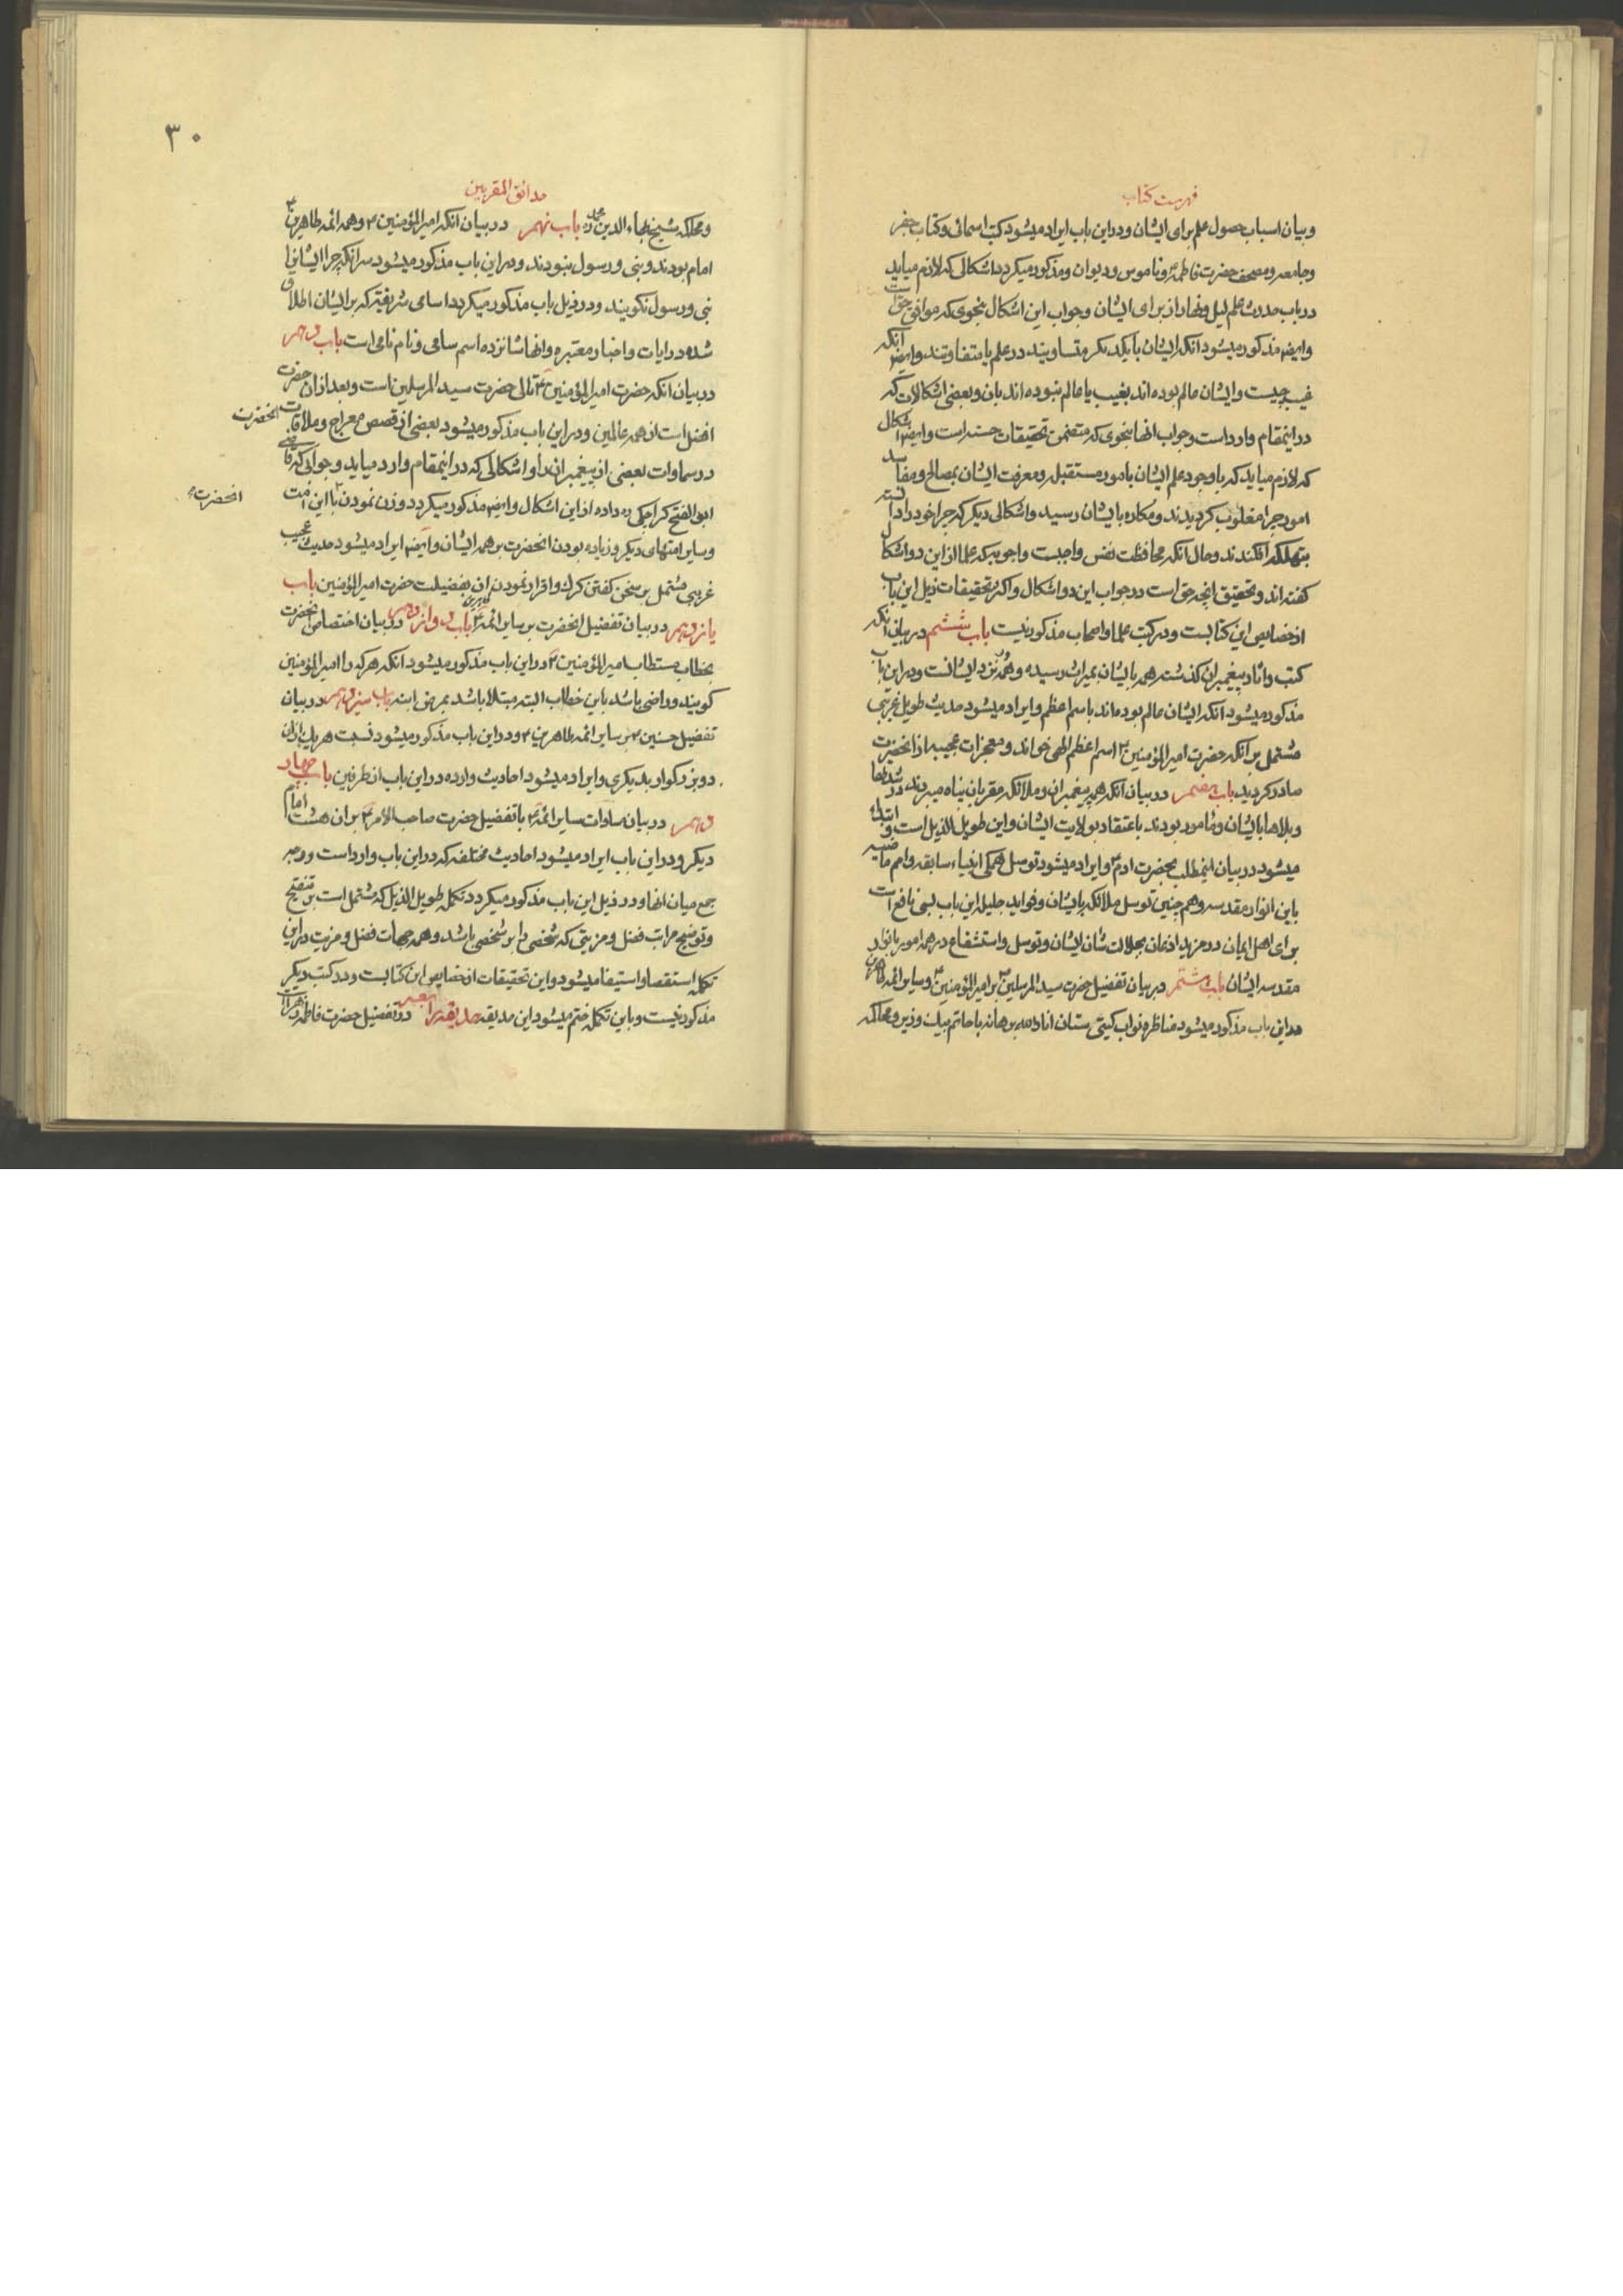 فهرست کتاب
وبیان اسباب حصول علم برای ایشان ودر این باب ایراد میشود کتب اسمائی وکتاب جفر
وجامعه ومصحف حضرت فاطمه وناموس ودیوان ومذکور میکردد اشکالی که لازم میاید
در باب حدوث علم لیل ونهار از برای ایشان وجواب این اشکال بنحوی که موافق حق است
وایضا مذکور میشود آنکه ایشان با یکدیگر متساویند در علم یا متفاوتند وایضا آنکه
غیب چیست وایشان عالم بوده اند بغیب یا عالم نبوده اند بان وبعضی اشکالات که
در اینمقام وارد است وجواب انها بنحوی که متضمن تحقیقات حسنه است وایضا اشکال
که لازم میاید که با وجود علم ایشان بامور مستقبله ومعرفت ایشان بمصالح ومفاسد
امور چرا مغلوب کردیدند ومکاره بایشان رسید واشکالی دیگر که چرا خود را دانسته
بتهلکه افکندند وحال آنکه محافظت نفس واجبست واجوبه که علما از این دو اشکال
کفته اند وتحقیق انچه حق است در جواب این دو اشکال واکثر تحقیقات ذیل این باب
از خصایص این کتابست ودر کتب علما واصحاب مذکور نیست باب ششم در بیان آنکه
کتب واثار پیغمبران کذشته همه بایشان بمیراث رسیده وهمه نزد ایشانست ودر این باب
مذکور میشود آنکه ایشان عالم بوده اند باسم اعظم وایراد میشود حدیث طویل غریبی
مشتمل بر آنکه حضرت امیر المؤمنین اسم اعظم الهی خواند ومعجزات عجیبه از انحضرت
صادر کردید باب هفتم در بیان آنکه همه پیغمبران وملائکه مقربان پناه میبردند در شدتها
وبلاها بایشان ومامور بودند باعتقاد بولایت ایشان واین طویل الذیل است وابتداء
میشود در بیان اینمطلب بحضرت ادم وایراد میشود توسل همکی انبیاء سابقه وامم ماضیه
باین انوار مقدسه وهم چنین توسل ملائکه بایشان وفواید جلیله این باب بسی نافع است
برای اهل ایمان در مزید اذعان بجلالت شان ایشان وتوسل واستشفاع در همه امور بانوار
مقدسه ایشان باب هشتم در بیان تفضیل حضرت سید المرسلین بر امیر المؤمنین وسایر ائمه طاهرین
در این باب مذکور میشود مناظره نواب کیتی ستان انار الله برهانه با حاتم بیک وزیر ومحاکمه
۳۰
حدائق المقربین
ومحاکمه شیخ بهاء الدین محمد ره باب نهم در بیان آنکه امیر المؤمنین وهمه ائمه طاهرین
امام بودند ونبی ورسول نبودند ودر این باب مذکور میشود سر آنکه چرا ایشانرا
نبی ورسول نکویند ودر ذیل باب مذکور میکردد اسامی شریفه که بر ایشان اطلاق
شده در ایات واخبار معتبره وانها شانزده اسم سامی ونام نامی است باب دهم
در بیان آنکه حضرت امیر المؤمنین تالی حضرت سید المرسلین است وبعد از ان حضرت
افضل است از همه عالمین ودر این باب مذکور میشود بعضی از قصص معراج وملاقات انحضرت
در سماوات بعضی از پیغمبران را واشکالی که در اینمقام وارد میاید وجوابی که قاضی
ابو الفتح کراجکی ره داده از این اشکال وایضا مذکور میکردد وزن نمودن با این امت
انحضرت
وسایر امتهای دیگر وزیاده بودن انحضرت بر همه ایشان وایضا ایراد میشود حدیث عجیب
غریبی مشتمل بر سخن کفتن کرک واقرار نمودن ان بفضیلت حضرت امیر المؤمنین باب
یازدهم در بیان تفضیل انحضرت بر سایر ائمه باب دوازدهم در بیان اختصاص انحضرت
بخطاب مستطاب امیر المؤمنین ودر این باب مذکور میشود آنکه هر که را امیر المؤمنین
کویند وراضی باشد باین خطاب البته مبتلا باشد بمرض ابنه باب سیزدهم در بیان
تفضیل حسنین بر سایر ائمه طاهرین ودر این باب مذکور میشود نسبت هر یک از ان
دو بزرکوار بدیکری وایراد میشود احادیث وارده در این باب از طرفین باب چهار
دهم در بیان مساوات سایر ائمه با تفضیل حضرت صاحب الامر بر ان هشت امام
دیگر ودر این باب ایراد میشود احادیث مختلفه که در این باب وارد است ووجه
جمع میان انها ودر ذیل این باب مذکور میکردد تکمله طویل الذیل که مشتمل است بر تنقیح
وتوضیح مراتب فضل ومزیتی که شخصی را بر شخصی باشد وهمه جهات فضل ومزیت در این
تکمله استقصا واستیفا میشود واین تحقیقات از خصایص این کتابست ودر کتب دیگر
مذکور نیست وباین تکمله ختم میشود این حدیقه حدیقه رابعه در تفضیل حضرت فاطمه زهرا